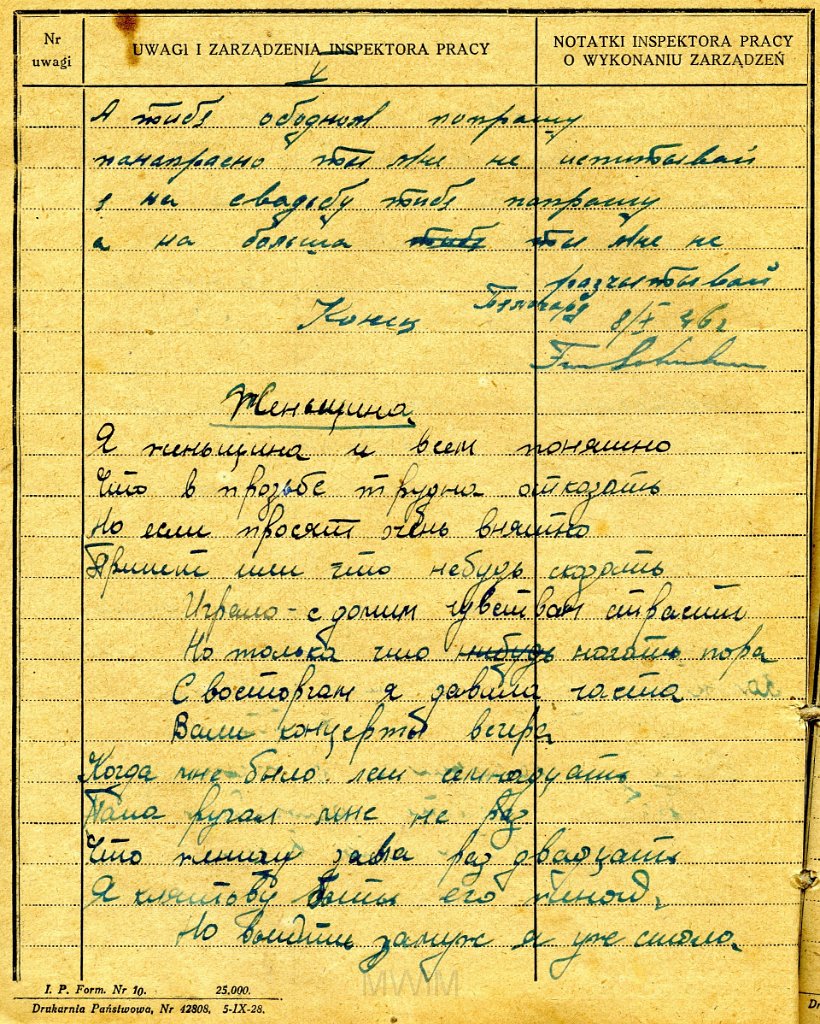 Nr uwagi
UWAGI I ZARZĄDZENIA INSPEKTORA PRACY
NOTATKI INSPEKTORA PRACY
O WYKONANIU ZARZĄDZEŃ
V
А тибе ободном попрашу
понапрасно ты мне не испитывай
я на свадьбу тибе попрашу
а на больша тибе ты мне не
разчытывай
Конец
8/X 46г
Женьщина
Я женьщина и всем поняшно
Что в прозьбе трудна отказать
Но если просят очень внятно
или что небудь сказать
Играло - с долим чувствам страсти
Но только что нибудь начать пора
С восторгам я давала часта
Вали концерты вечера
Когда мне было лет семнадцать
Папа ругал мне не раз
Что раз двадцать
Я клятову быть его женой,
Но выйдить замуж я уже
I. P. Form. Nr 19. 25,000.
Drukarnia Państwowa, Nr 42808. 5-IX-28.
MWM
Dr